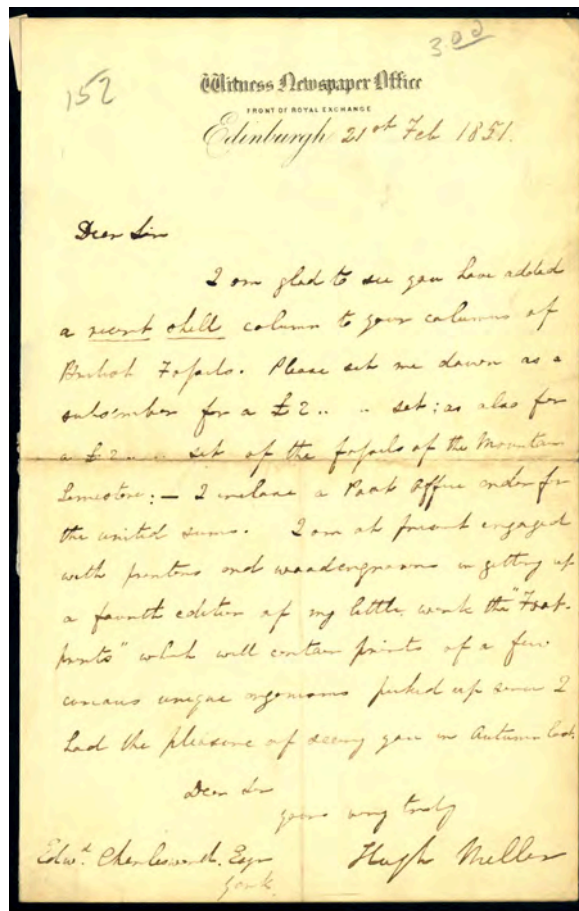 300
152
Witness Newspaper Office
FRONT OF ROYAL EXCHANGE
Edinburgh 21st Feb 1851.
Dear Sir
I am glad to see you have added
a recent shell column to your columns of
British Fossils. Please set me down as a
subscriber for a £2 .. .. set; as also for
a £2 .. .. set of the fossils of the Mountain
Limestone; — I inclose a Post Office order for
the united sums. I am at present engaged
with printers and woodengravers in getting up
a fourth edition of my little work the "Foot-
prints" which will contain prints of a few
curious unique organisms picked up since I
had the pleasure of seeing you in Autumn last.
Dear Sir
yours very truly
Hugh Miller
Edwd. Charlesworth. Esqr
York.